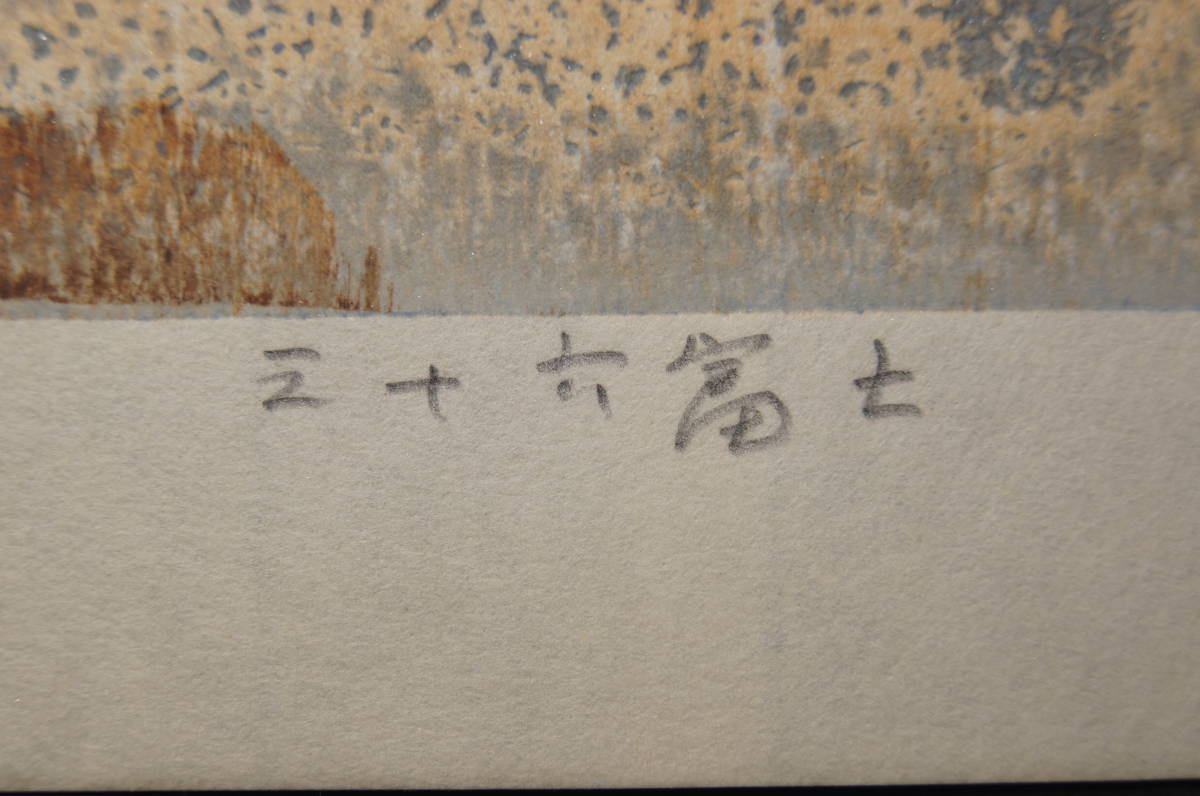 三十六富士